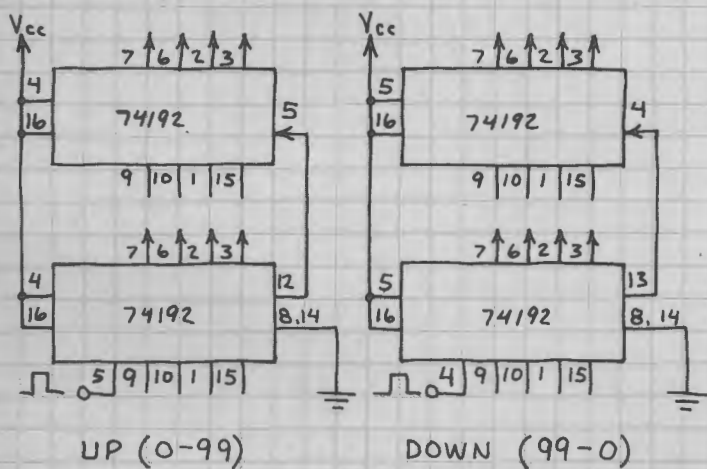 Vcc
7 6 2 3
4
16
74192
5
9 10 1 15
7 6 2 3
4
16
74192
12
8,14
5 9 10 1 15
UP (0-99)
Vcc
7 6 2 3
5
16
74192
4
9 10 1 15
7 6 2 3
5
16
74192
13
8,14
4 9 10 1 15
DOWN (99-0)